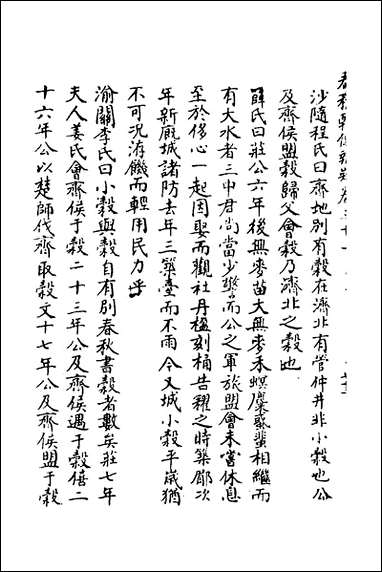 沙隨程氏曰齊地別有穀在濟北有管仲井非小穀也公
及齊侯盟穀歸父會穀乃濟北之穀也
薛氏曰莊公六年後無麥苗大無麥禾螟麋蜚相繼而
有大水者三中君尚當少警而公之軍旅盟會未嘗休息
至於侈心一起因娶而觀社丹楹刻桷告糴之時築郿次
年新廐城諸防去年三築臺而不雨今又城小穀平歲猶
不可況洊饑而輕用民力乎
渝關李氏曰小穀與穀自有別春秋書穀者數矣莊七年
夫人姜氏會齊侯于穀二十三年公及齊侯遇于穀僖二
十六年公以楚師伐齊取穀文十七年公及齊侯盟于穀